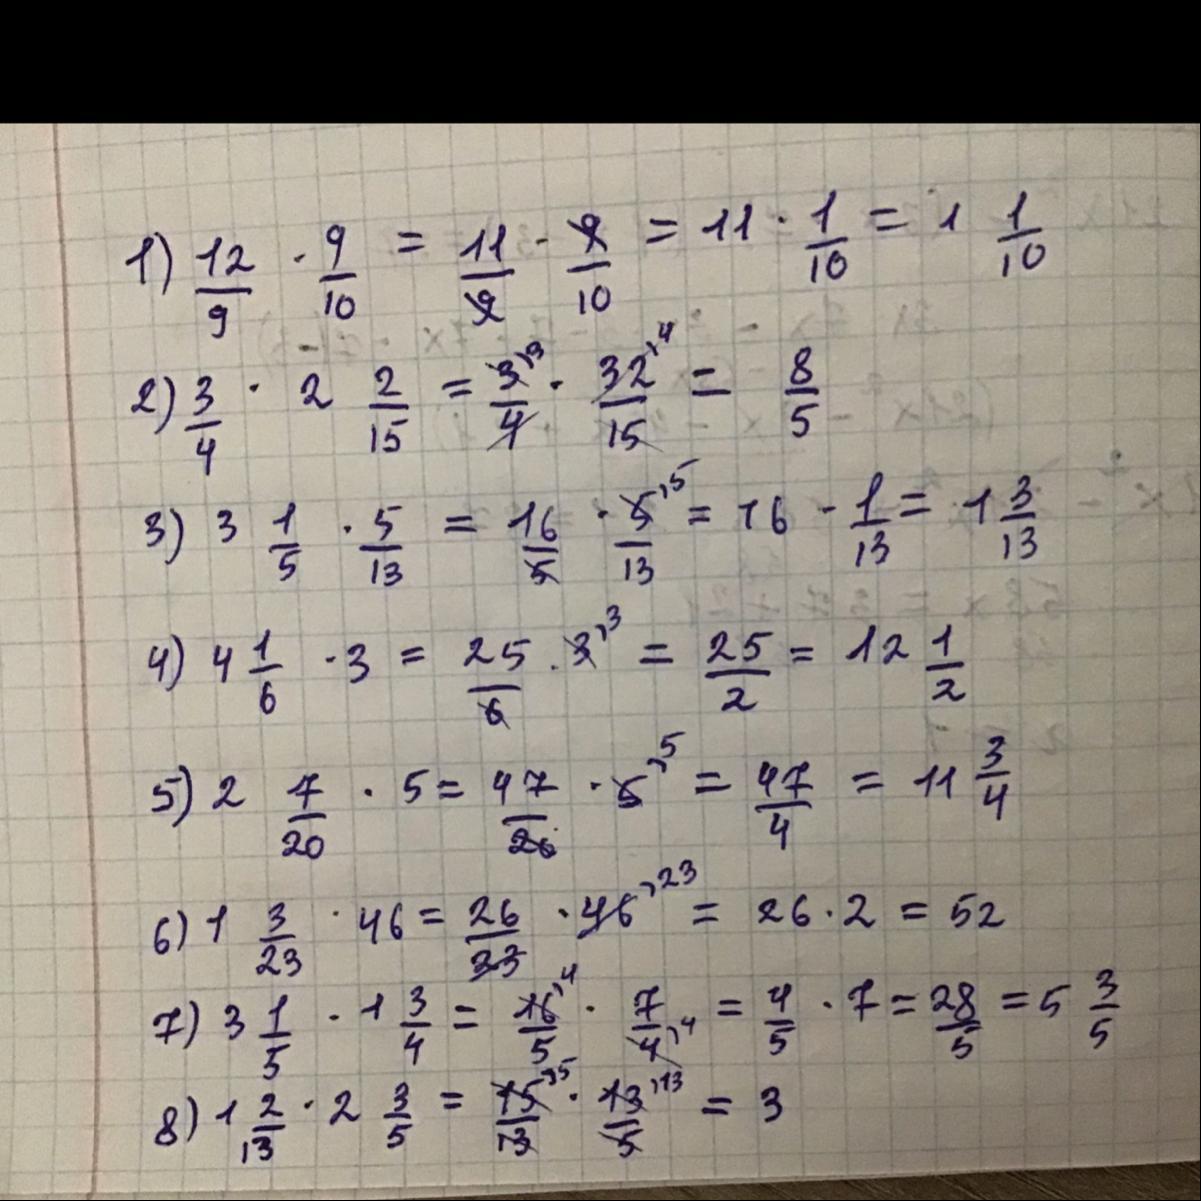 1) 12/9 · 9/10 = 11/9 · 9/10 = 11 · 1/10 = 1 1/10
2) 3/4 · 2 2/15 = 3/4 ,3 · 32/15 ,4 = 8/5
3) 3 1/5 · 5/13 = 16/5 · 5/13 ,5 = 16 · 1/13 = 1 3/13
4) 4 1/6 · 3 = 25/6 · 3 ,3 = 25/2 = 12 1/2
5) 2 7/20 · 5 = 47/20 · 5 ,5 = 47/4 = 11 3/4
6) 1 3/23 · 46 = 26/23 · 46 ,23 = 26 · 2 = 52
7) 3 1/5 · 1 3/4 = 16/5 ,4 · 7/4 ,4 = 4/5 · 7 = 28/5 = 5 3/5
8) 1 2/13 · 2 3/5 = 15/13 ,5 · 13/5 ,13 = 3